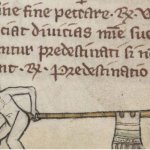 ine fine peccare. R. V
ciat diuitias mie sue
ntur predestinati si n
nt. R. Predestinatio